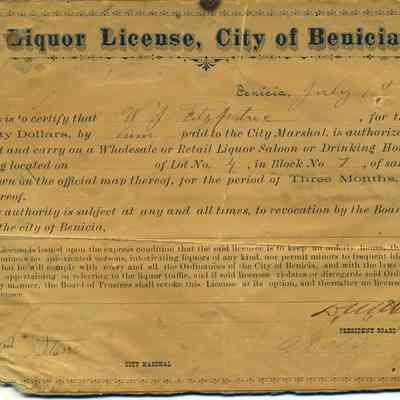 Liquor License, City of Benicia
Benicia, July
is to certify that W. J. Fitzpatric , for th
ty Dollars, by him paid to the City Marshal, is authorize
t and carry on a Wholesale or Retail Liquor Saloon or Drinking Hou
ng located on of Lot No. 4, in Block No 7, of sa
wn on the official map thereof, for the period of Three Months,
ereof.
authority is subject at any and all times, to revocation by the Board
the city of Benicia,
License is issued upon the express condition that the said licensee is to keep an orderly house, tha
minors nor intoxicated persons, intoxicating liquors of any kind, nor permit minors to frequent his
hat he will comply with every and all the Ordinances of the City of Benicia, and with the laws
appertaining or referring to the liquor traffic, and if said licensee violates or disregards said Ordi
y manner, the Board of Trustees shall revoke this License at its option, and thereafter no license
censee.
PRESIDENT BOARD
CITY MARSHAL